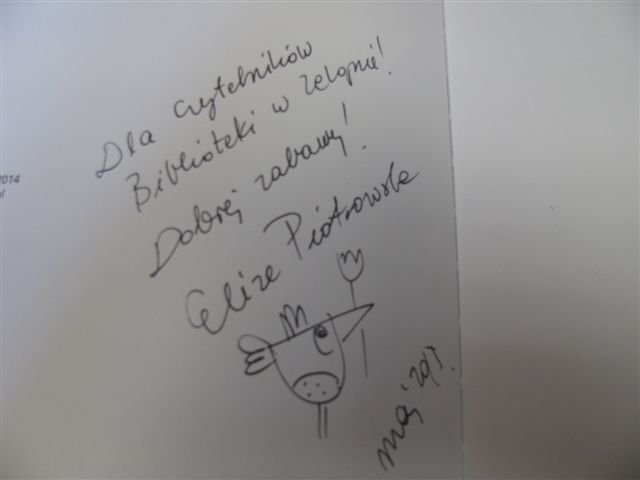 2014
Dla czytelników
Biblioteki w Zelopnie!
Dobrej zabawy!
Eliza Piotrowska
maj